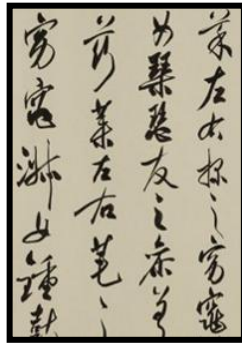 菜左右採之窈窕
女琴瑟友之參差
荇菜左右芼之
窈窕淑女鍾鼓